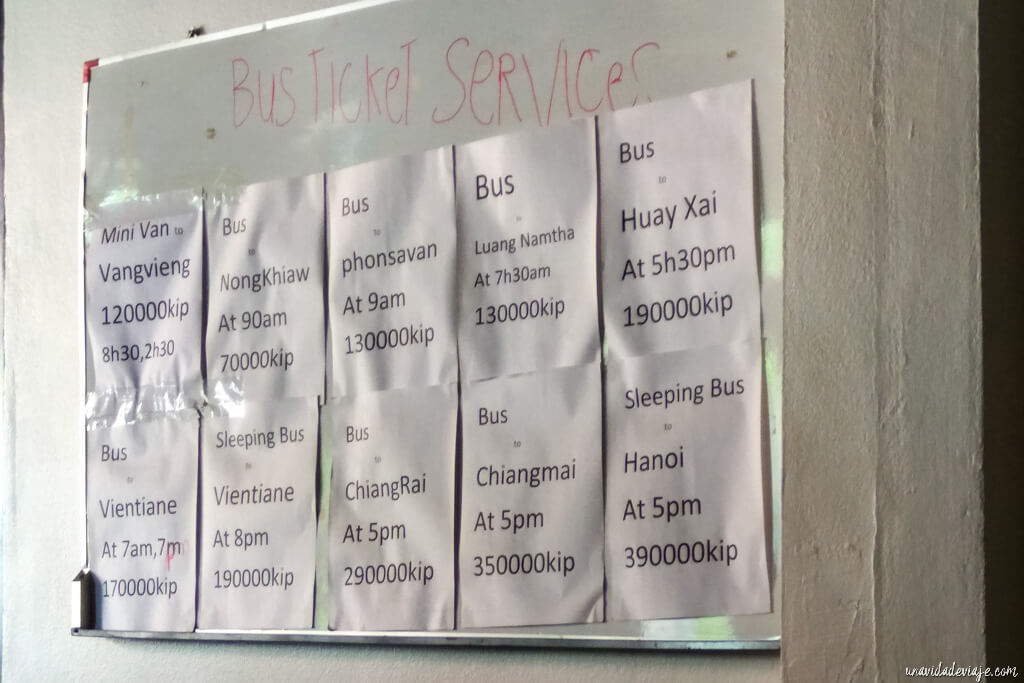 Bus Ticket Services
Mini Van to
Vangvieng
120000kip
8h30,2h30
Bus
to
NongKhiaw
At 90am
70000kip
Bus
to
phonsavan
At 9am
130000kip
Bus
to
Luang Namtha
At 7h30am
130000kip
Bus
to
Huay Xai
At 5h30pm
190000kip
Bus
to
Vientiane
At 7am,7pm
170000kip
Sleeping Bus
to
Vientiane
At 8pm
190000kip
Bus
to
ChiangRai
At 5pm
290000kip
Bus
to
Chiangmai
At 5pm
350000kip
Sleeping Bus
to
Hanoi
At 5pm
390000kip
unavidadeviaje.com